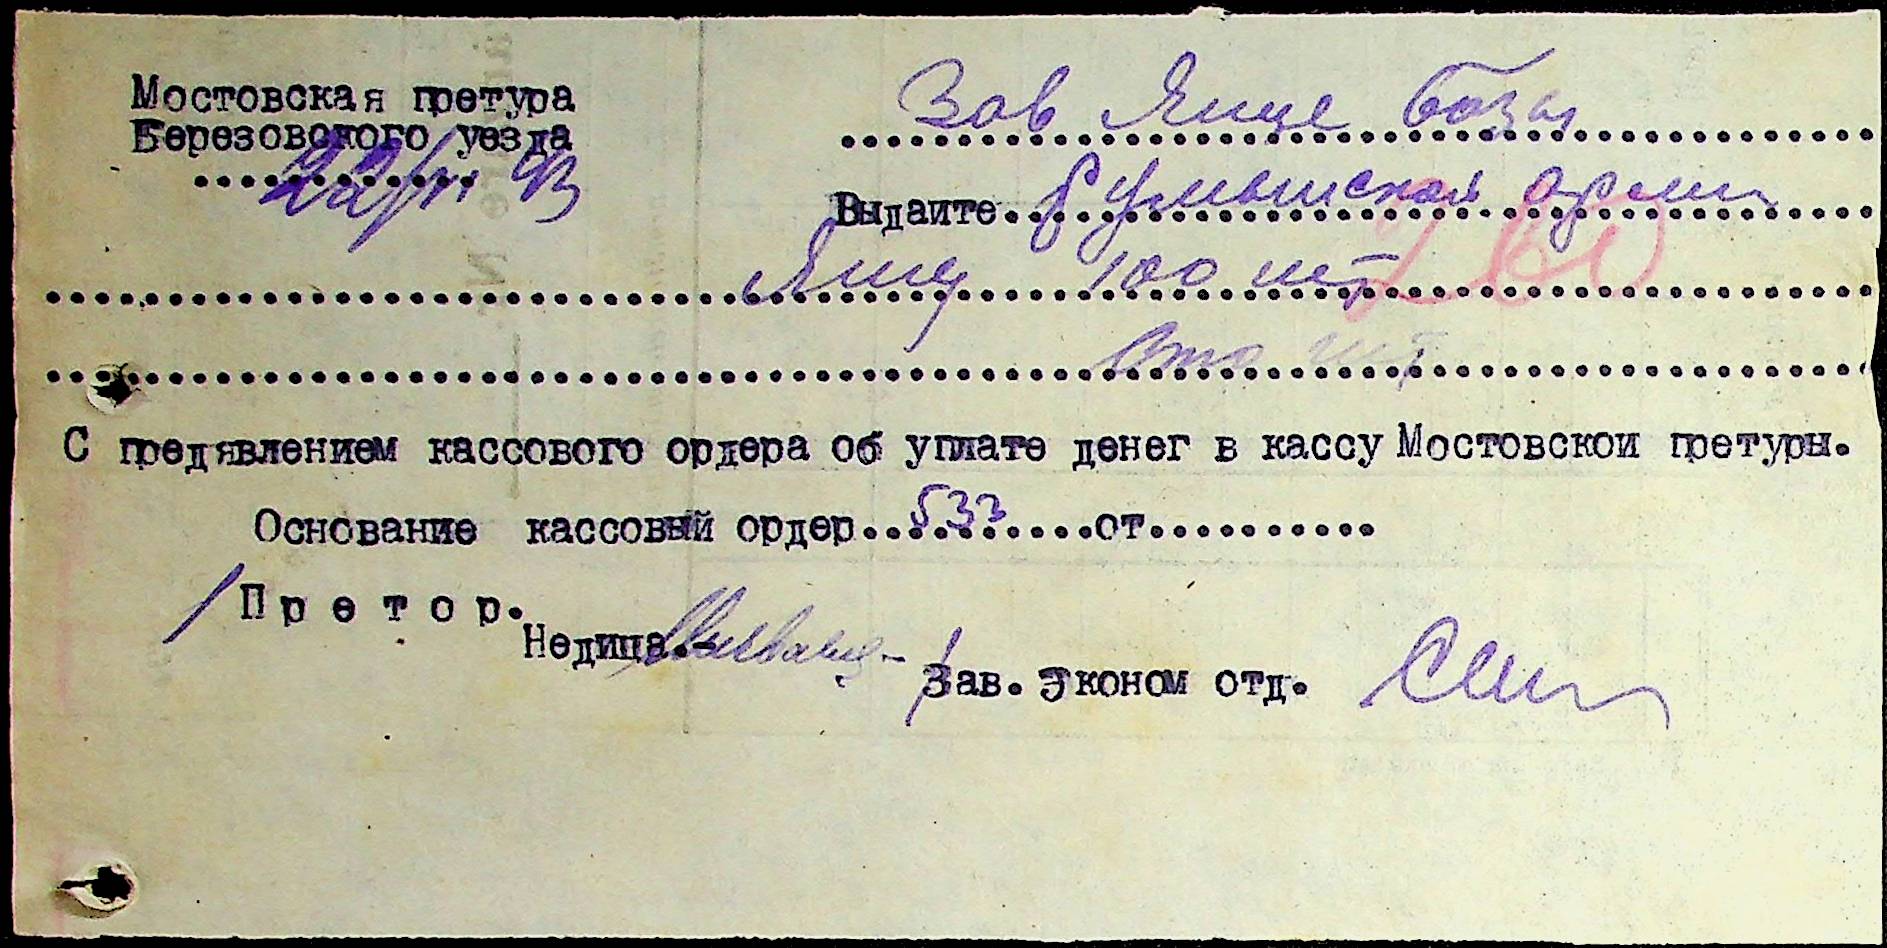 Мостовская претура
Березовского уезда
22/VI 43
Зав Яице базы
Выдаите Румынская арми
Яиц 100 шт
260
Сто шт
С предявлением кассового ордера об уплате денег в кассу Мостовскои претуры.
Основание кассовый ордер 533 от
Претор.
Недица.-
Зав. Эконом отд.